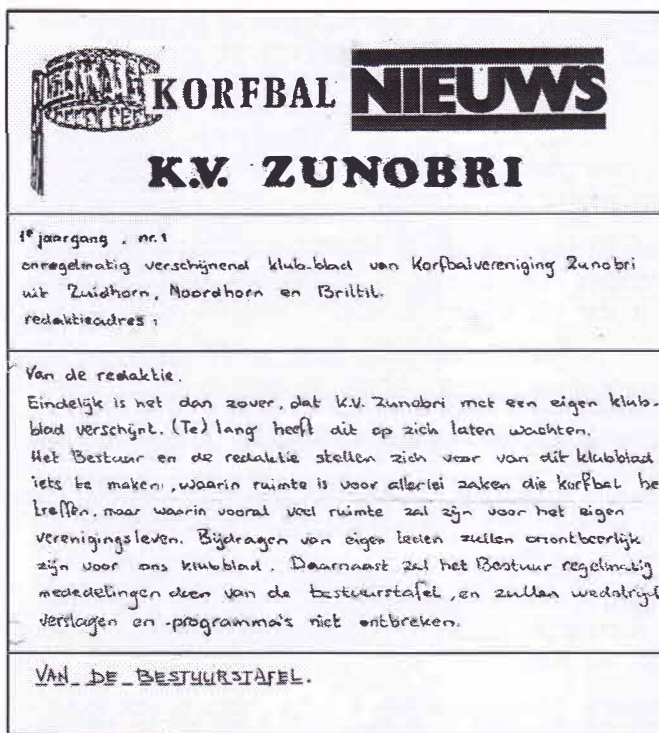 KORFBAL NIEUWS
K.V. ZUNOBRI
1e jaargang . nr.1
onregelmatig verschijnend klub-blad van Korfbalvereniging Zunobri
uit Zuidhorn, Noordhorn en Briltil.
redaktieadres :
Van de redaktie.
Eindelijk is het dan zover, dat K.V. Zunobri met een eigen klub-
blad verschijnt. (Te) lang heeft dit op zich laten wachten.
Het Bestuur en de redaktie stellen zich voor van dit klubblad
iets te maken, waarin ruimte is voor allerlei zaken die korfbal be
treffen, maar waarin vooral veel ruimte zal zijn voor het eigen
verenigingsleven. Bijdragen van eigen leden zullen onontbeerlijk
zijn voor ons klubblad. Daarnaast zal het Bestuur regelmatig
mededelingen doen van de bestuurstafel, en zullen wedstrijd
verslagen en -programma's niet ontbreken.
VAN DE BESTUURSTAFEL.